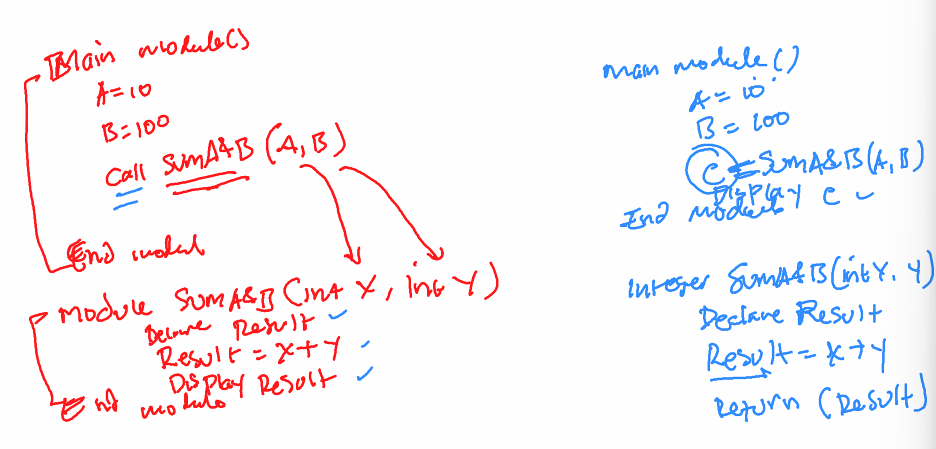 Main module()
A=10
B=100
Call SumA&B (A, B)
End modul
Module SumA&B (int X, int Y)
Declare Result
Result = X+Y
Display Result
End module
main module ()
A = 10
B = 100
C = SumA&B(A, B)
Display C
End module
Integer SumA&B(int X, Y)
Declare Result
Result = X+Y
Return (Result)